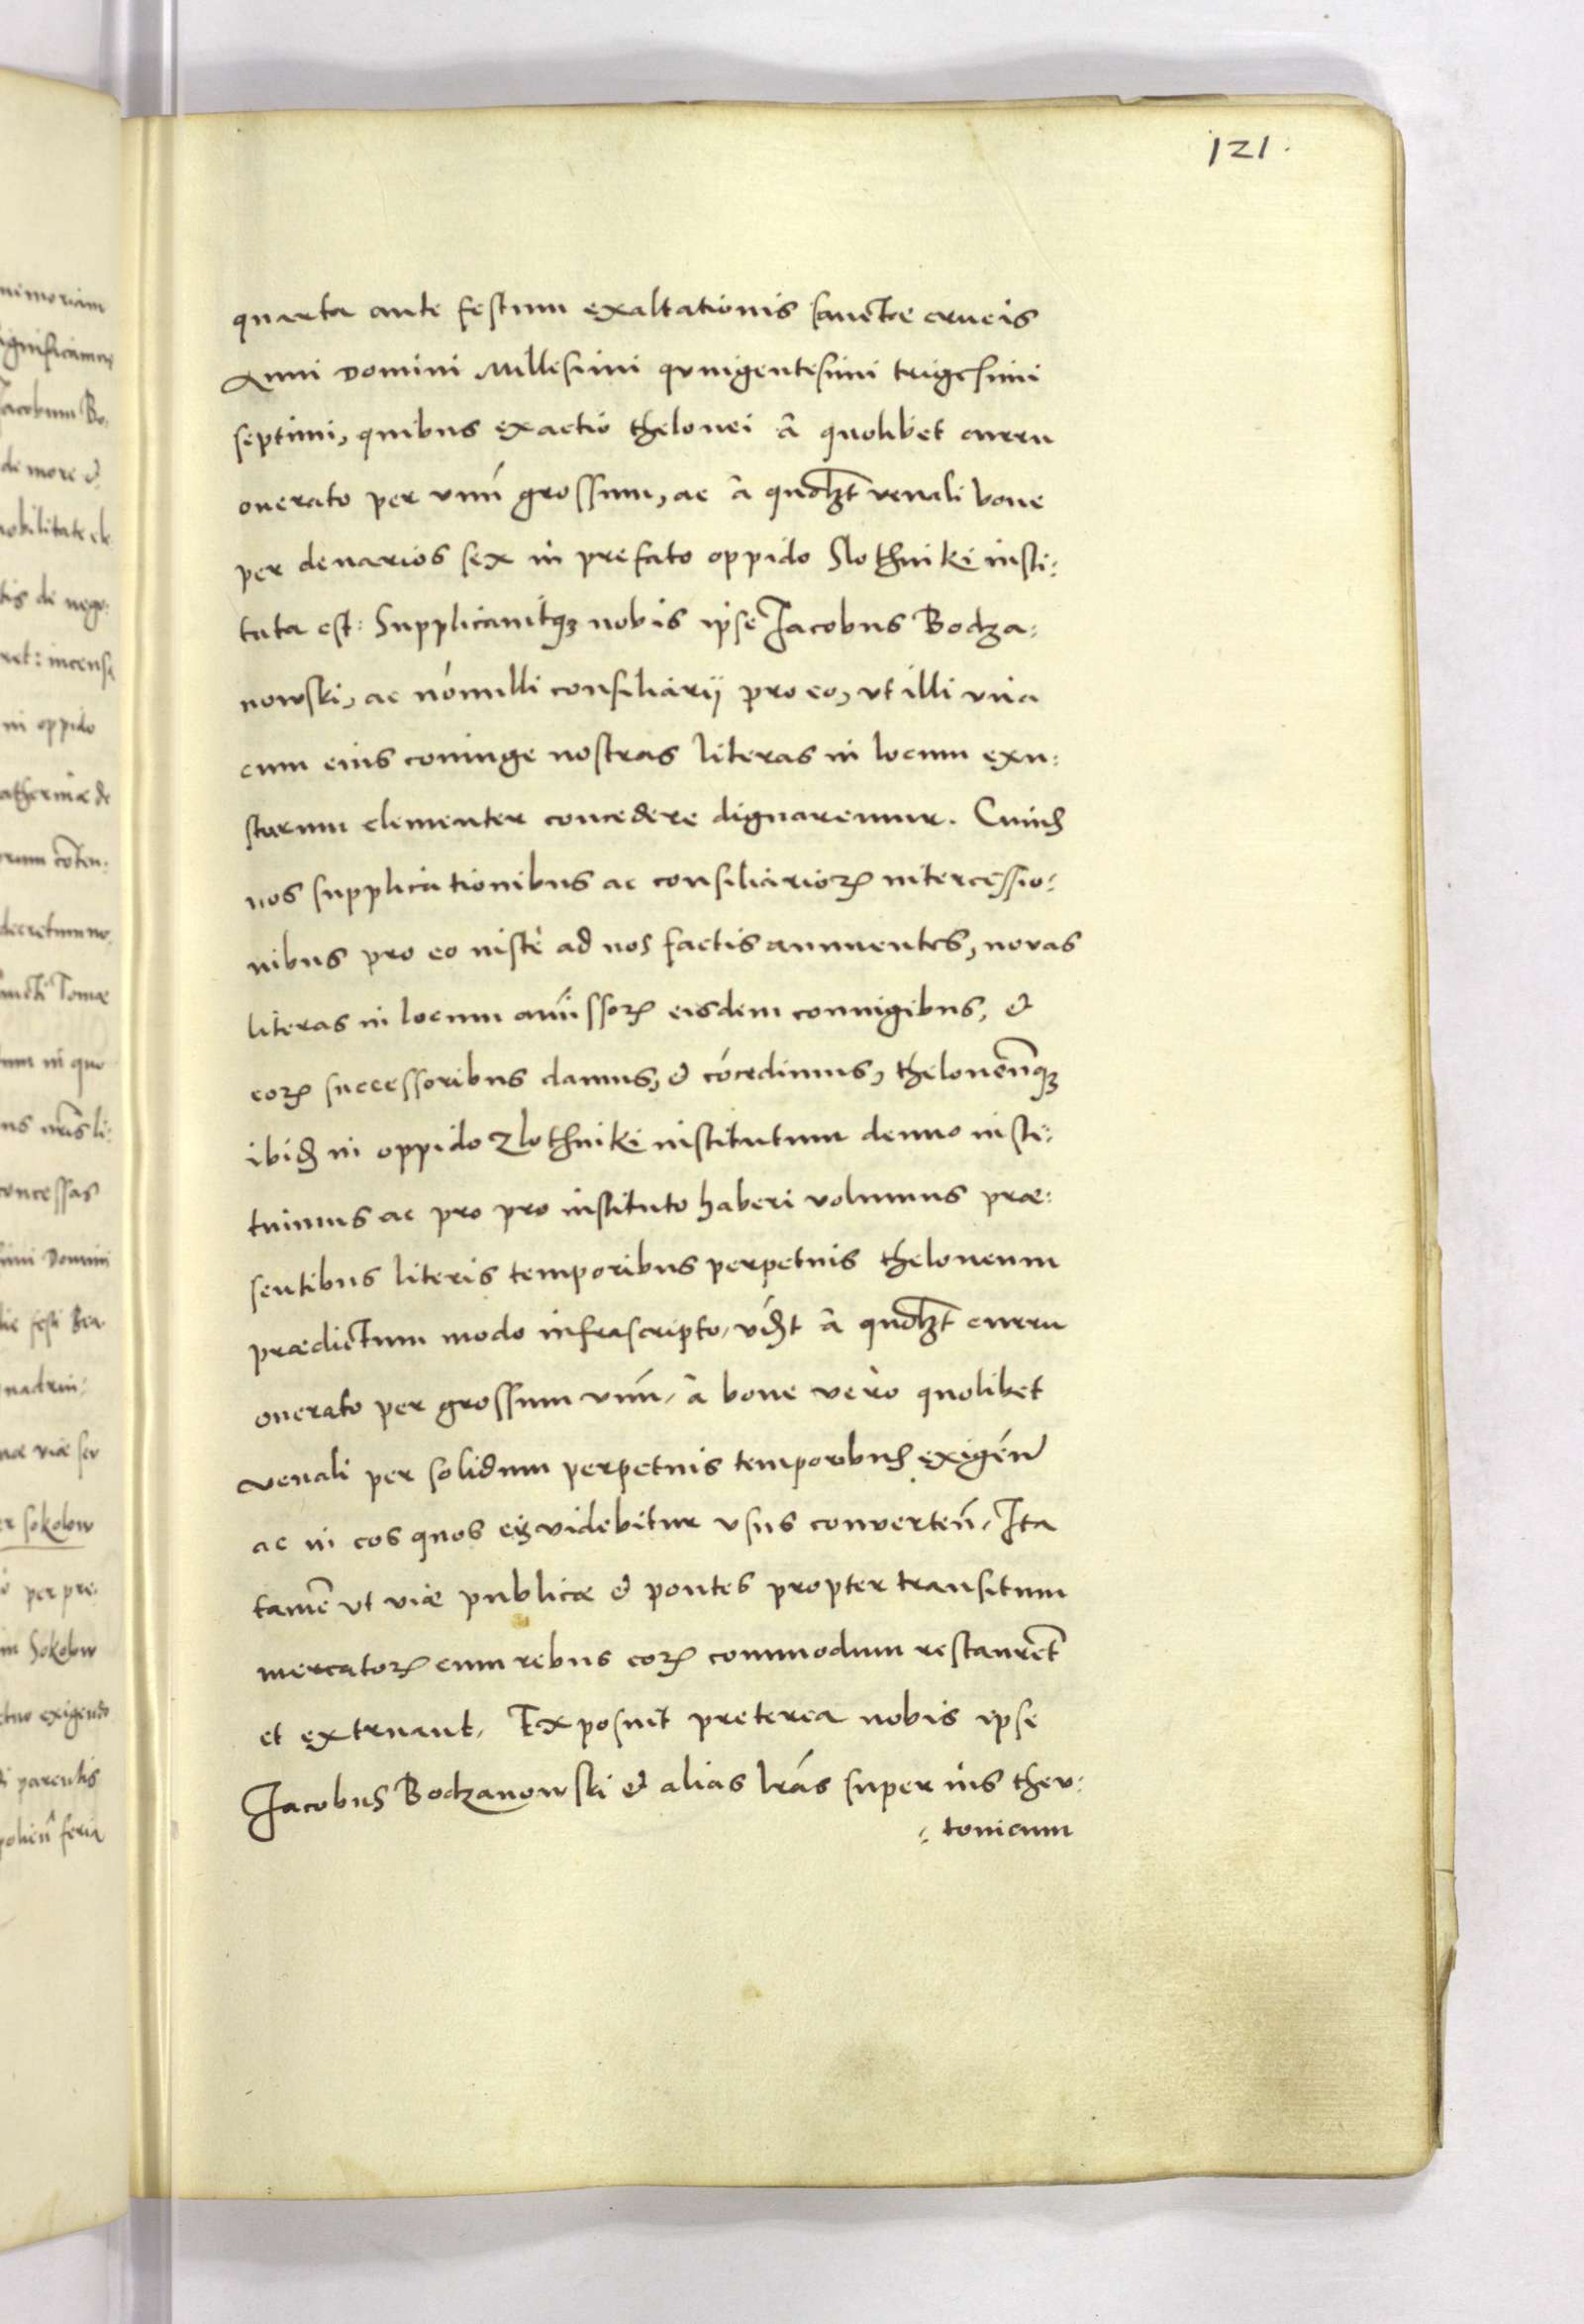 121.
quarta ante festum exaltationis sanctæ crucis
Anni Domini Millesimi quingentesimi trigesimi
septimi, quibus exactio thelonei â quolibet curru
onerato per vnũ grossum, ac â quolꝫt venali boue
per denarios sex in prefato oppido Slothniki insti:
tuta est: Supplicauitqꝫ nobis ipse Jacobus Bodza:
nowski, ac nõnulli consiliarij pro eo, vt illi vna
cum eius coniuge nostras literas in locum exu:
starum clementer concedere dignaremur. Cuiuʒ
nos supplicationibus ac consiliarioꝝ intercessio:
nibus pro eo iustè ad nos factis annuentes, nouas
literas in locum amissoꝝ eisdem coniugibus, &
eoꝝ successoribus damus, & cõcedimus, theloneũqꝫ
ibid in oppido Zlothniki institutum denuo insti:
tuimus ac pro pro instituto haberi volumus præ:
sentibus literis temporibus perpetuis theloneum
prædictum modo infrascripto, vdꝫt â quolꝫt curru
onerato per grossum vnũ, â boue verò quolibet
venali per solidum perpetuis temporibus exigeñ
ac in eos quos eis videbitur vsus conuerteñ, Ita
tamẽ vt viæ publicæ & pontes propter transitum
mercatoꝝ cum rebus eoꝝ commodum restaurẽt
et extruant, Exposuit preterea nobis ipse
Jacobus Bodzanowski & alias lrãs super ius theu:
:tonicum